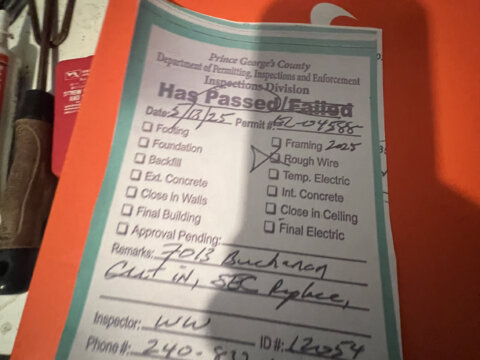 Prince George's County
Department of Permitting, Inspections and Enforcement
Inspections Division
Has Passed/Failed
Date: 5/13/25 Permit #: EL-04588-
2025
☐ Footing ☐ Framing
☐ Foundation ☐ Rough Wire
☐ Backfill ☐ Temp. Electric
☐ Ext. Concrete ☐ Int. Concrete
☐ Close in Walls ☐ Close in Ceiling
☐ Final Building ☐ Final Electric
☐ Approval Pending:
Remarks: 7013 Buchanan
Cut in, SEC Replace,
Inspector: WW ID#: 12054
Phone #: 240-